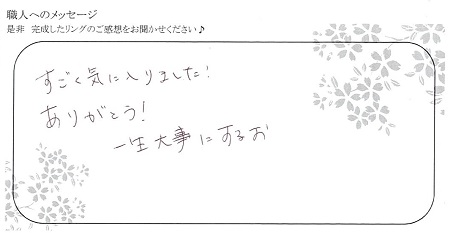 職人へのメッセージ
是非 完成したリングのご感想をお聞かせください♪
すごく気に入りました!
ありがとう!
一生大事にするお